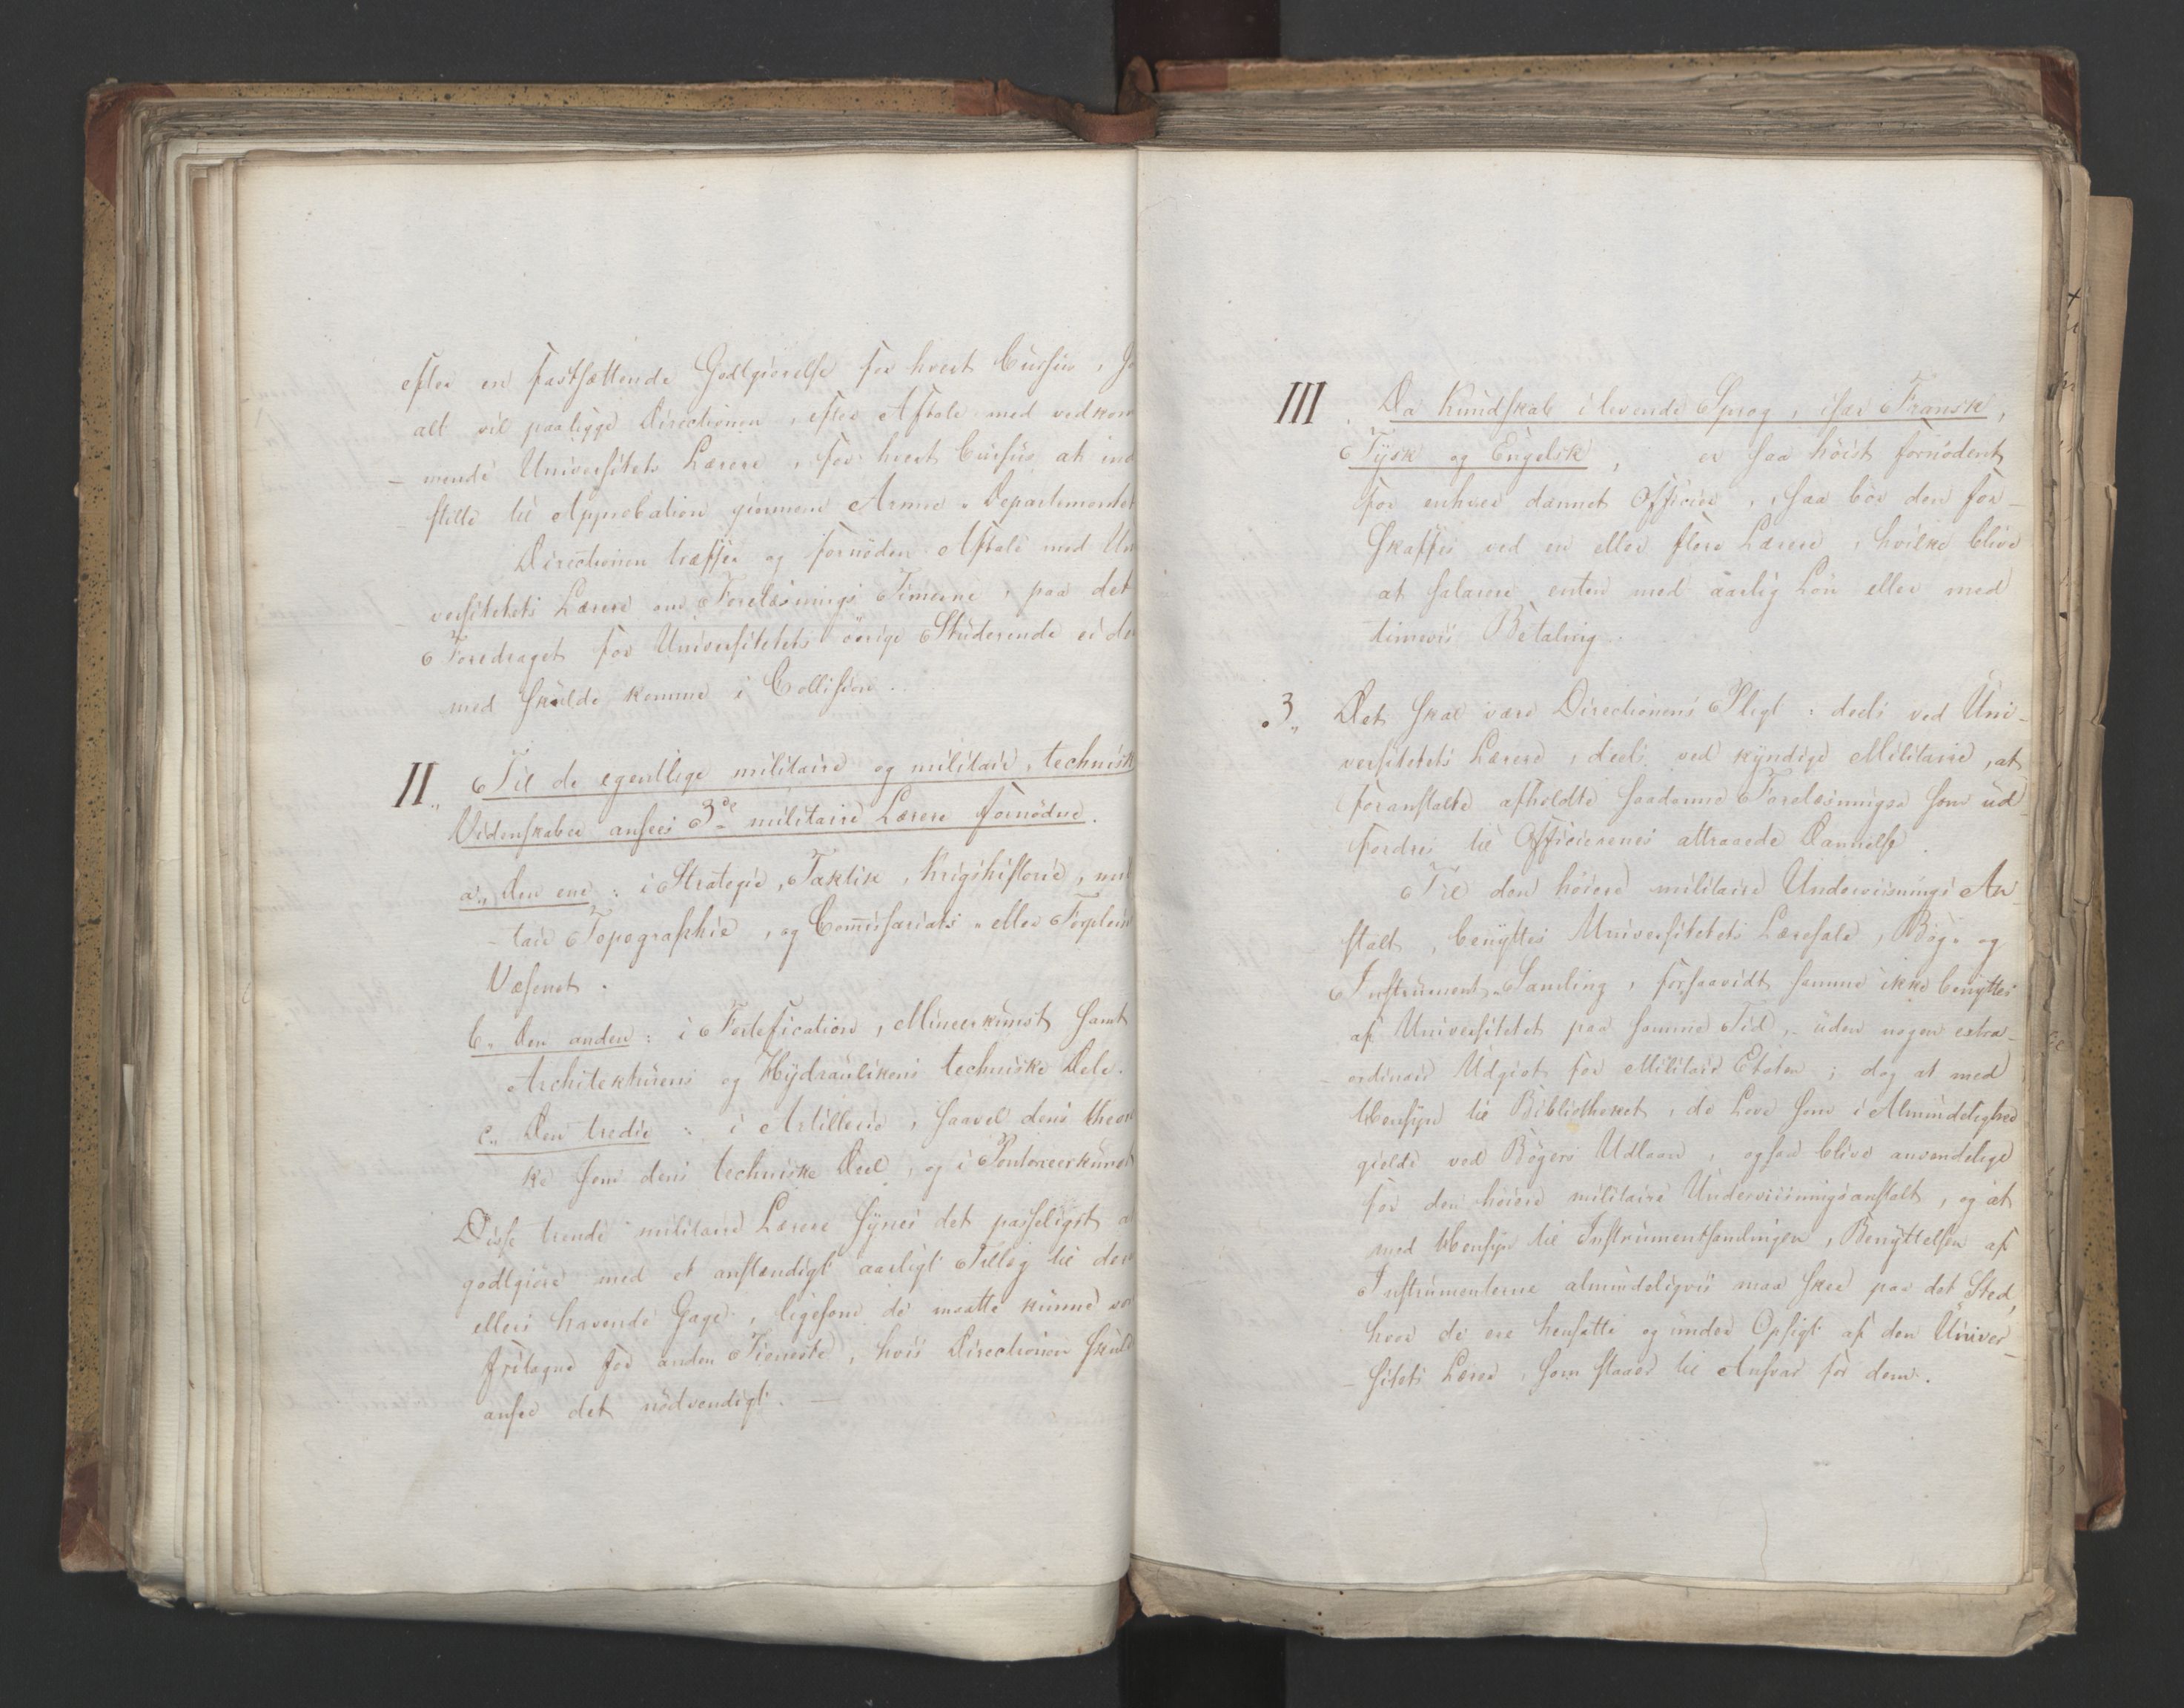 efter en fastsættende Godtgiørelse for hvert Cursus,
alt vil paaligge Directionen, efter Aftale med vedkom
- mende Universitets Lærere, for hvert Cursus at ind
- stille til Approbation giennem Armee-Departementet
Directionen træffer og fornöden Aftale med Un
versitetets Lærere om Forelæsnings Timerne, paa det
Foredraget for Universitetets övrige Studerende ei der
med skulde komme i Collision.
II„ Til de egentlige militaire og militair, technisk
Videnskaber ansees 3de militaire Lærere fornödne.
a„ Den ene: i Strategie, Taktik, Krigshistorie, mili
- tair Topographie, og Com̄issariats- eller Forpleini
Væsenet.
b„ Den anden: i Fortification, Mineerkunst samt
Architekturens og Hydraulikens techniske Dele.
c„ Den tredie: i Artillerie, saavel dens theore
ke som dens techniske Deel, og i Pontoneerkunst
Disse trende militaire Lærere synes det passeligst a
godtgiøre med et anstændigt aarligt Tillæg til den
ellers havende Gage, ligesom de maatte kunne vor
fritagne for anden Tieneste, hvis Directionen skuld
ansee det nödvendigt. —
III. Da Kundskab i levende Sprog, især Fransk,
Tysk og Engelsk, er saa höist fornödent
for enhver dannet Officier, saa bör den for-
skaffes ved en eller flere Lærere, hvilke blive
at salarere enten med aarlig Lön eller med
timeviis Betaling.
3„ Det skal være Directionens Pligt: deels ved Uni-
versitetets Lærere, deels ved kyndige Militaire, at
foranstalte afholdte saadanne Forelæsninger som ud-
fordres til Officierernes attraaede Dannelse.
Til den höiere militaire Underviisnings An-
stalt, benyttes Universitetets Læresale, Bog- og
Instrument-Samling, forsaavidt samme ikke benyttes
af Universitetet paa samme Tid, uden nogen extra-
- ordinair Udgivt for Militair Etaten; dog at med
Hensyn til Bibliotheket, de Love som i Almindelighed
gielde ved Bögers Udlaan, ogsaa blive anvendelige
for den höiere militaire Underviisningsanstalt, og at
med Hensyn til Instrumentsamlingen, Benyttelsen af
Instrumenterne almindeligviis maa skee paa det Sted,
hvor de ere hensatte og under Opsigt af den Univer-
- sitets Lærer, som staaer til Ansvar for dem.